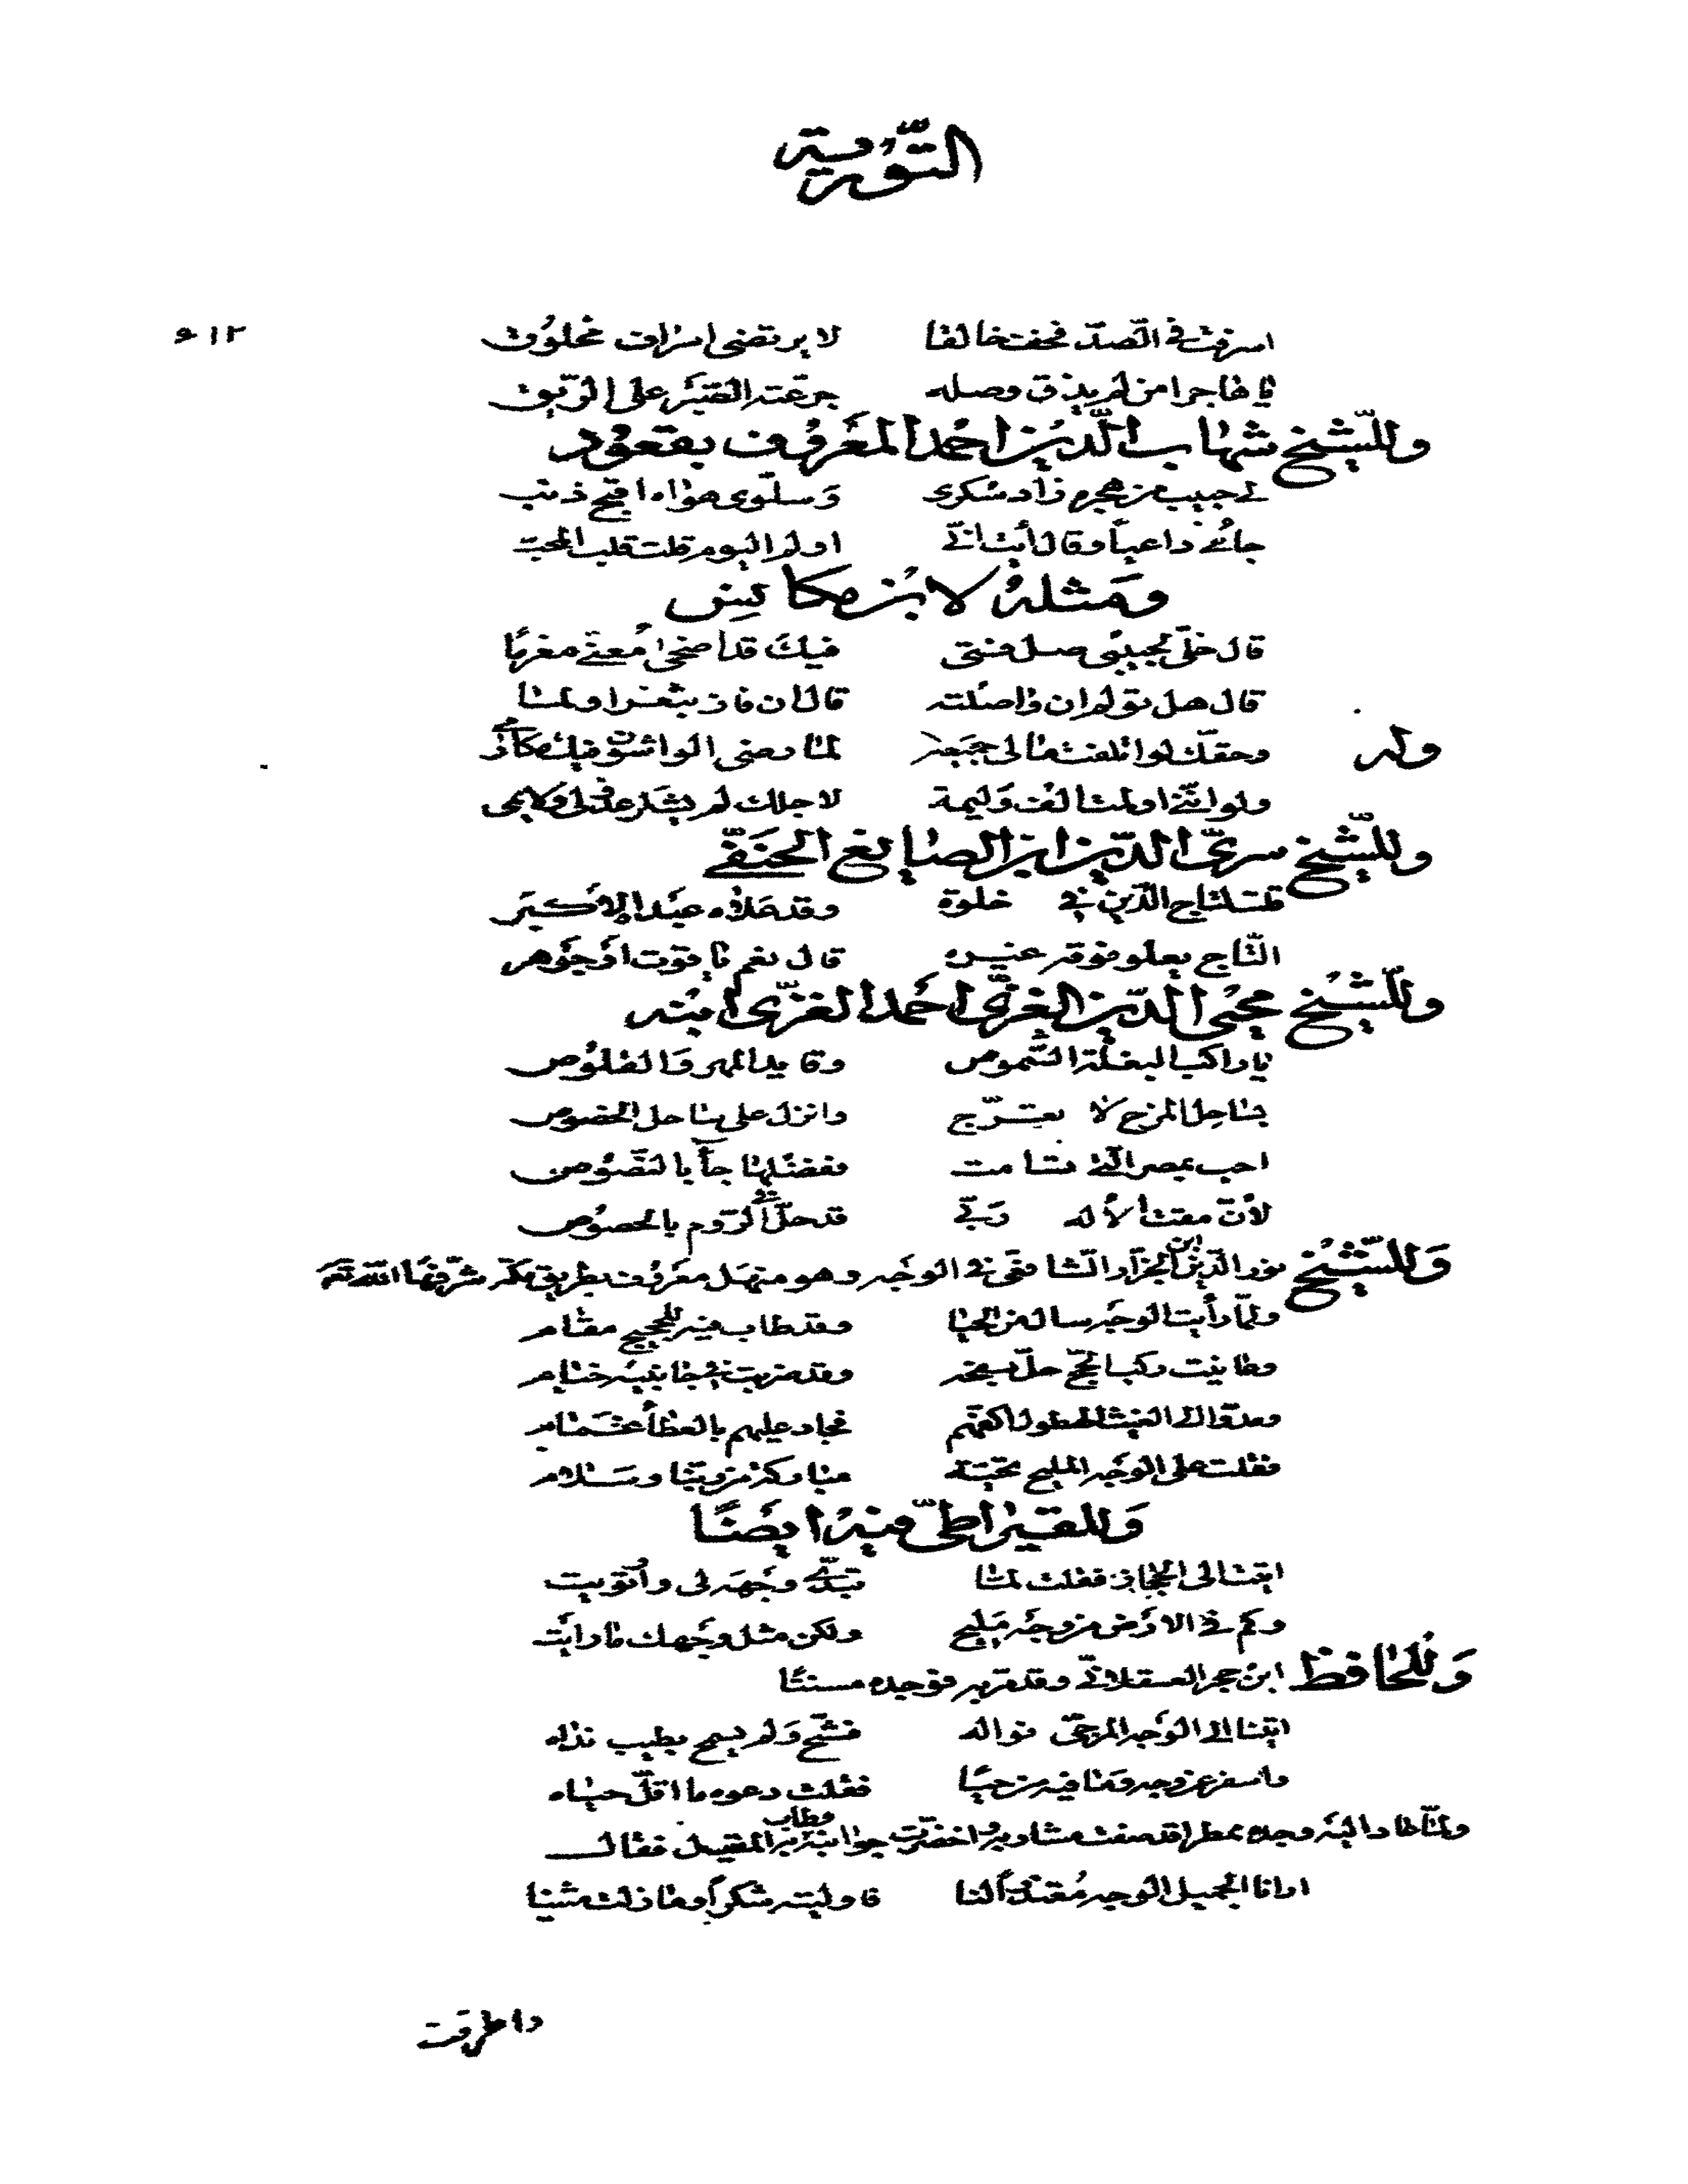 التورية
اسرفت في الصد فخف خالقا لا يرتضى اسراف مخلوق
يا هاجرا من لم يذق وصله جرعته الصبر على الريق
وللشيخ شهاب الدين احمد المعروف بقعود
لي حبيب من هجره زاد سكرى وسلوى هواه اقبح ذنب
جانى داعيا وقال أيت انى اولم اليوم قلت قلب المحب
ومثله لابن مكانس
قال خلى لحبيبى صل فتى فيك قد اضحى معنى مغرما
قال هل يولم ان واصلته قال ان فاز بثغر اولما
وله
وحقك لو اتلفت مالى جميعه لما رضى الواشون فيك مكانى
ولو اننى اولمت الف وليمة لاجلك لم يشكر عذولى ولا يحى
وللشيخ سرى الدين ابن الصايغ الحنفى
قلت لتاج الدين فى خلوة وقد علاه عبده الاكبر
التاج يعلو فوقه غيره قال نعم ياقوت او جوهر
وللشيخ محيى الدين الغزى احمد الغزى ابنه
يا راكب البغلة الشموص وقايد المهر والقلوص
بساحل المرج لا تعرج وانزل على ساحل الخصوص
احب بمصر التى تسامت بفضلها جآ بالنصوص
لأن مقت الاله ربى قد حل فى الروم بالخصوص
وللشيخ نور الدين ابن الجزار الشافعى فى الوجه وهو منهل معروف بطريق مكة شرفها الله تعه
ولما رأيت الوجه سال من الحيا وقد طاب فيه للحجيج مقام
وعاينت ركب الحج حل بسفحه وقد ضربت فى جانبيه خيام
ومدوا الى الغيث الهطول اكفهم فجاد عليهم بالعطأ غمام
فقلت على الوجه المليح تحية مباركة من ربنا وسلام
وللقيراطى فيه ايضًا
اتيت الى الحجاز فقلت لما تبدى وجهه لى وارتويت
وكم فى الارض من وجه مليح ولكن مثل وجهك ما رايت
وللحافظ ابن حجر العسقلانى وقد مر به فوجده مسنتا
اتينا الى الوجه المرجى نواله فشح ولم يسمح بطيب نداه
واسفر عن وجه وما فيه من حيا فقلت دعوه ما اقل حياه
ولما عاد اليه وجده ممطرا قد صفت مشاربه واخضرت جوانبه وطاب به المقيل فقال
ارانا الجميل الوجه مقبلا لنا فاوليته شكرا وما زلت مثنيا
واطرقت